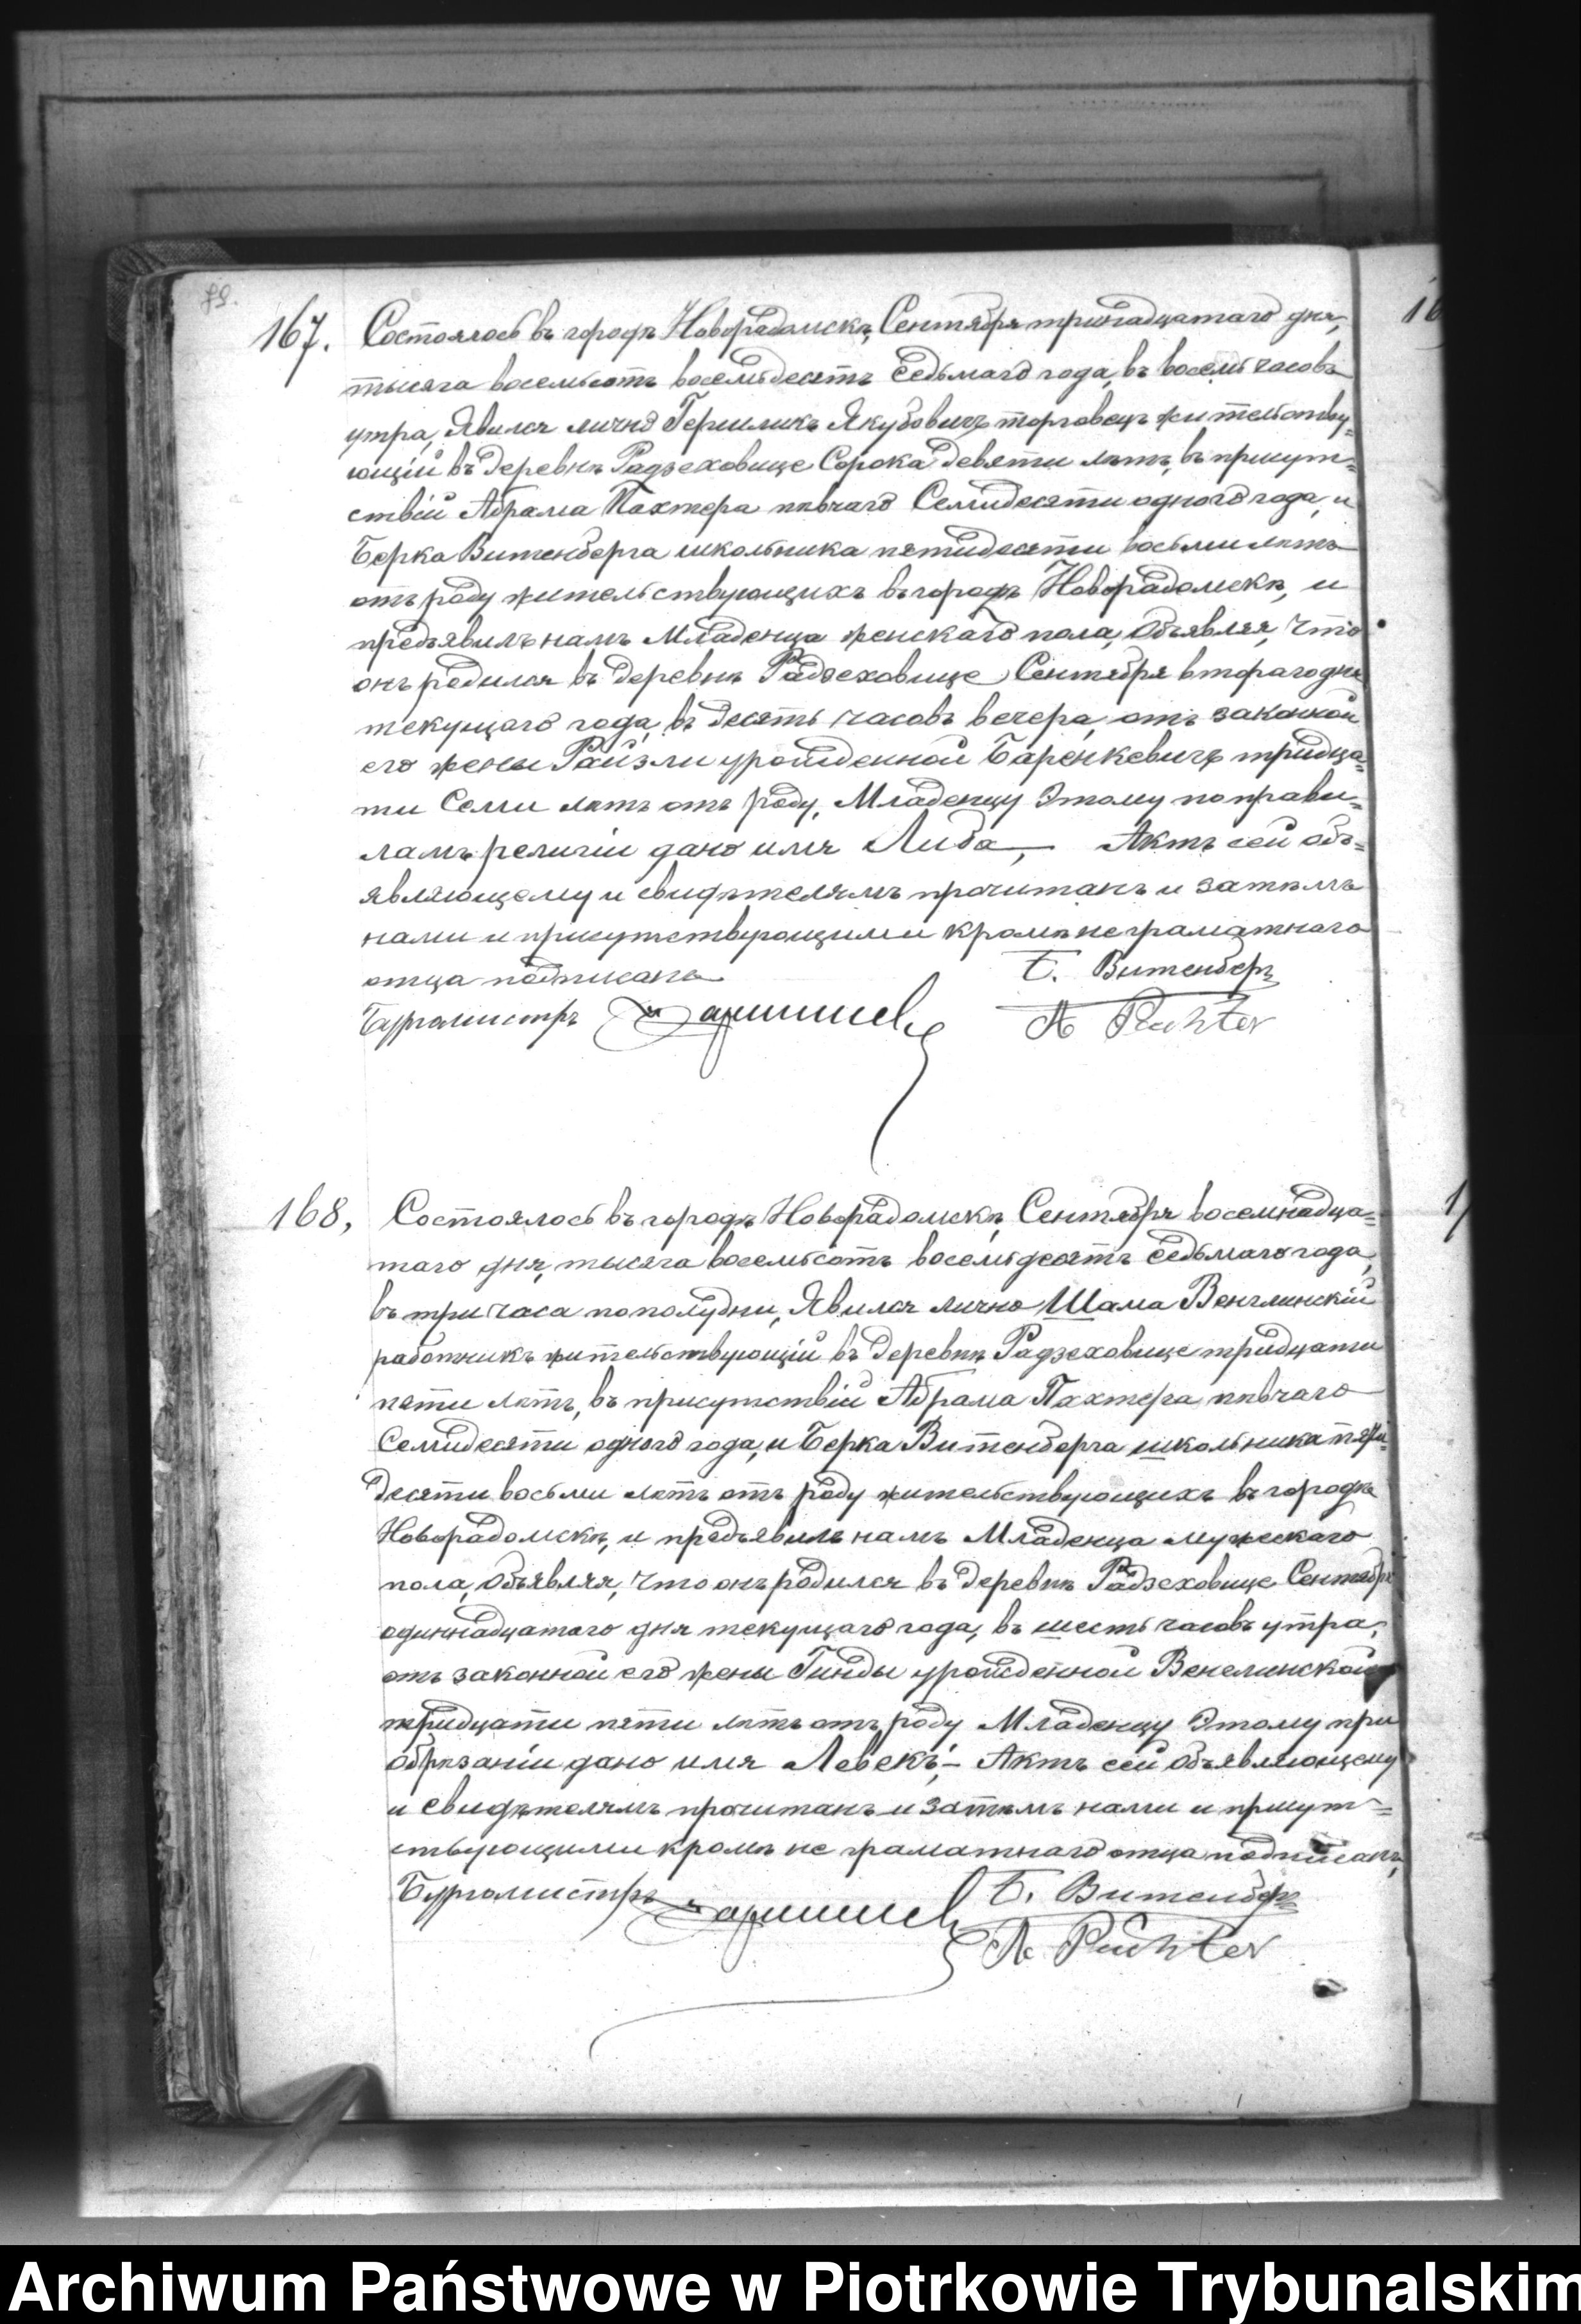 79.
167. Состоялось въ городѣ Новорадомскѣ, Сентября тринадцатаго дня,
тысяча восемьсотъ восемьдесятъ седьмаго года, въ восемь часовъ
утра, Явился лично Гершликъ Якубовичъ торговецъ жительству=
ющій въ деревнѣ Радзеховице Сорока девяти лѣтъ, въ присут=
ствіи Абрама Пахтера пѣвчаго Семидесяти одного года, и
Берка Витенберга школьника пятидесяти восьми лѣтъ
отъ роду жительствующихъ въ городѣ Новорадомскѣ, и
предъявилъ намъ Младенца женскаго пола, Объявляя, что
онъ родился въ деревнѣ Радзеховице Сентября втораго дня
текущаго года, въ десять часовъ вечера, отъ законной
его жены Райзли урожденной Баренкевичъ тридца=
ти Семи лѣтъ отъ роду, Младенцу Этому по прави=
ламъ религіи дано имя Либа, — Актъ сей объ=
являющему и свидѣтелямъ прочитанъ и затѣмъ
нами и присутствующими кромѣ неграматнаго
отца подписанъ
Б. Витенберг
Бургомистръ
A Pachter
168, Состоялось въ городѣ Новорадомскѣ, Сентября восемнадца=
таго дня, тысяча восемьсотъ восемьдесятъ седьмаго года,
въ три часа по полудни, Явился лично Шама Венглинскій
работникъ жительствующій въ деревнѣ Радзеховице тридцати
пяти лѣтъ, въ присутствіи Абрама Пахтера пѣвчаго
Семидесяти одного года, и Берка Витенберга школьника пяти=
десяти восьми лѣтъ отъ роду жительствующихъ въ городѣ
Новорадомскѣ, и предъявилъ намъ Младенца мужескаго
пола, Объявляя, что онъ родился въ деревнѣ Радзеховице Сентября
одиннадцатаго дня текущаго года, въ шесть часовъ утра,
отъ законной его жены Гинды урожденной Венглинской
тридцати пяти лѣтъ отъ роду Младенцу Этому при
обрѣзаніи дано имя Левекъ, — Актъ сей объявляющему
и свидѣтелямъ прочитанъ и затѣмъ нами и присут=
ствующими кромѣ не граматнаго отца подписанъ,
Бургомистръ
Б. Витенберг
A Pachter
Archiwum Państwowe w Piotrkowie Trybunalskim